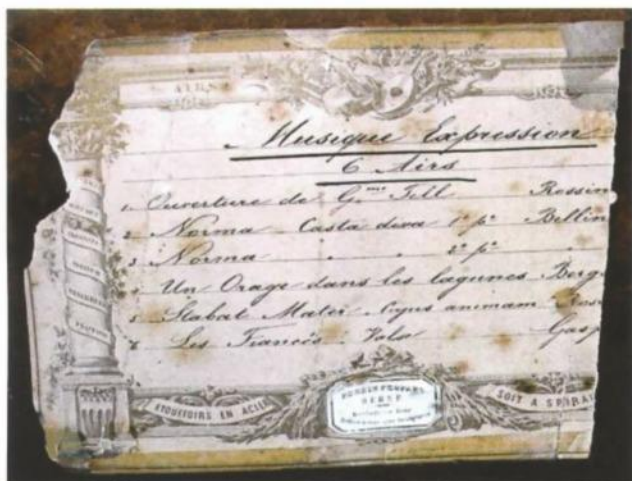 AIRS
Musique Expression
6 Airs
1 Ouverture de G.me Tell Rossin
2 Norma Casta diva 1e pe Bellin
3 Norma " " 2e pe "
4 Un Orage dans les lagunes Berg
5 Stabat Mater Cujus animam Ross
6 Les Fiancés Valse Gasp
ETOUFFOIRS EN ACIER
SOIT A SPIRAL